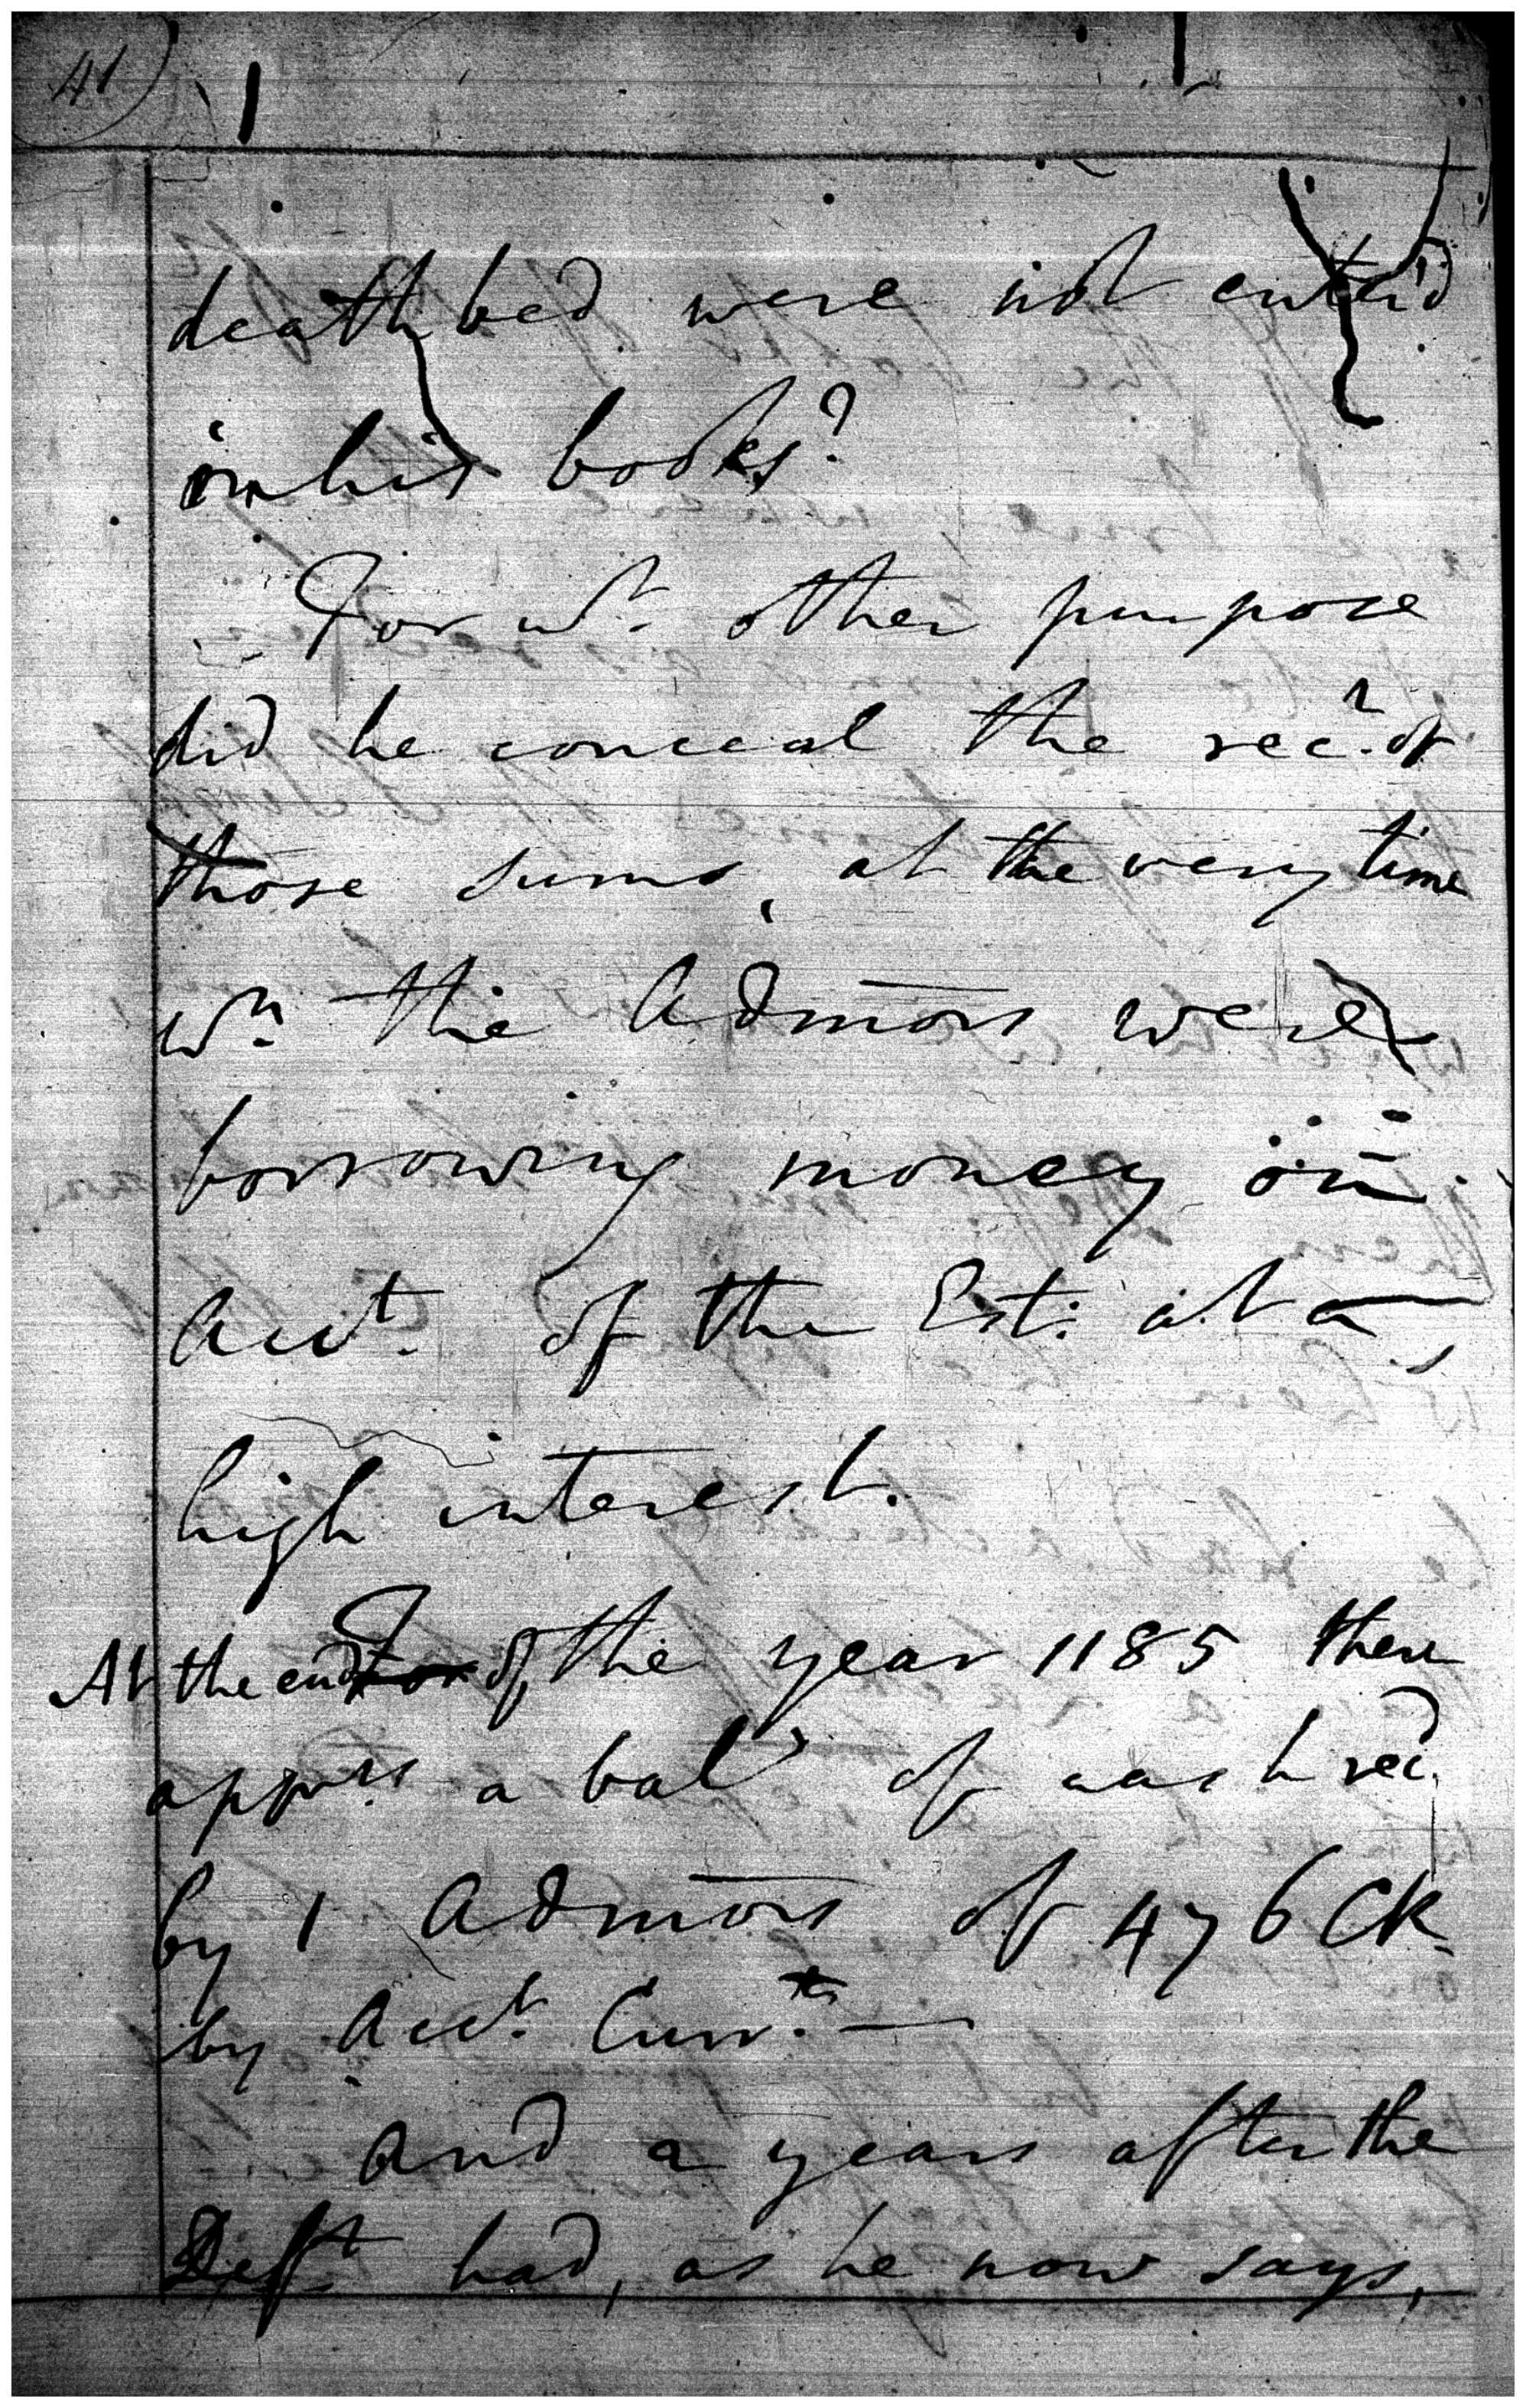 41)
deathbed were not enter'd
in his books?
For wt. other purpose
did he conceal the rect. of
those sums, at the very time
wn. the Admors were
borrowing money on
acct. of the Est: at a
high interest.
At the end For of the year 1185 there
apprs. a bale. of cash recd.
by 1 Admors of 476 CR.
by acct. Currt. —
And a years after the
Deft had, as he now says,